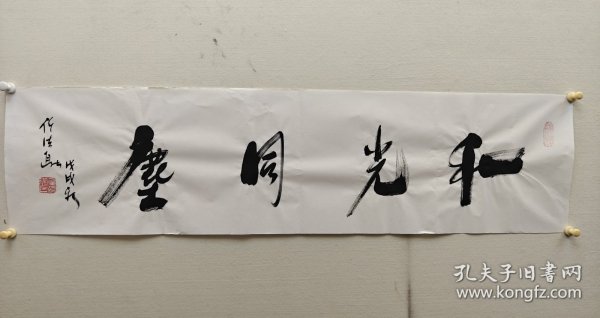 和光同塵
戊戌秋
孔夫子旧書网
www.kongfz.com